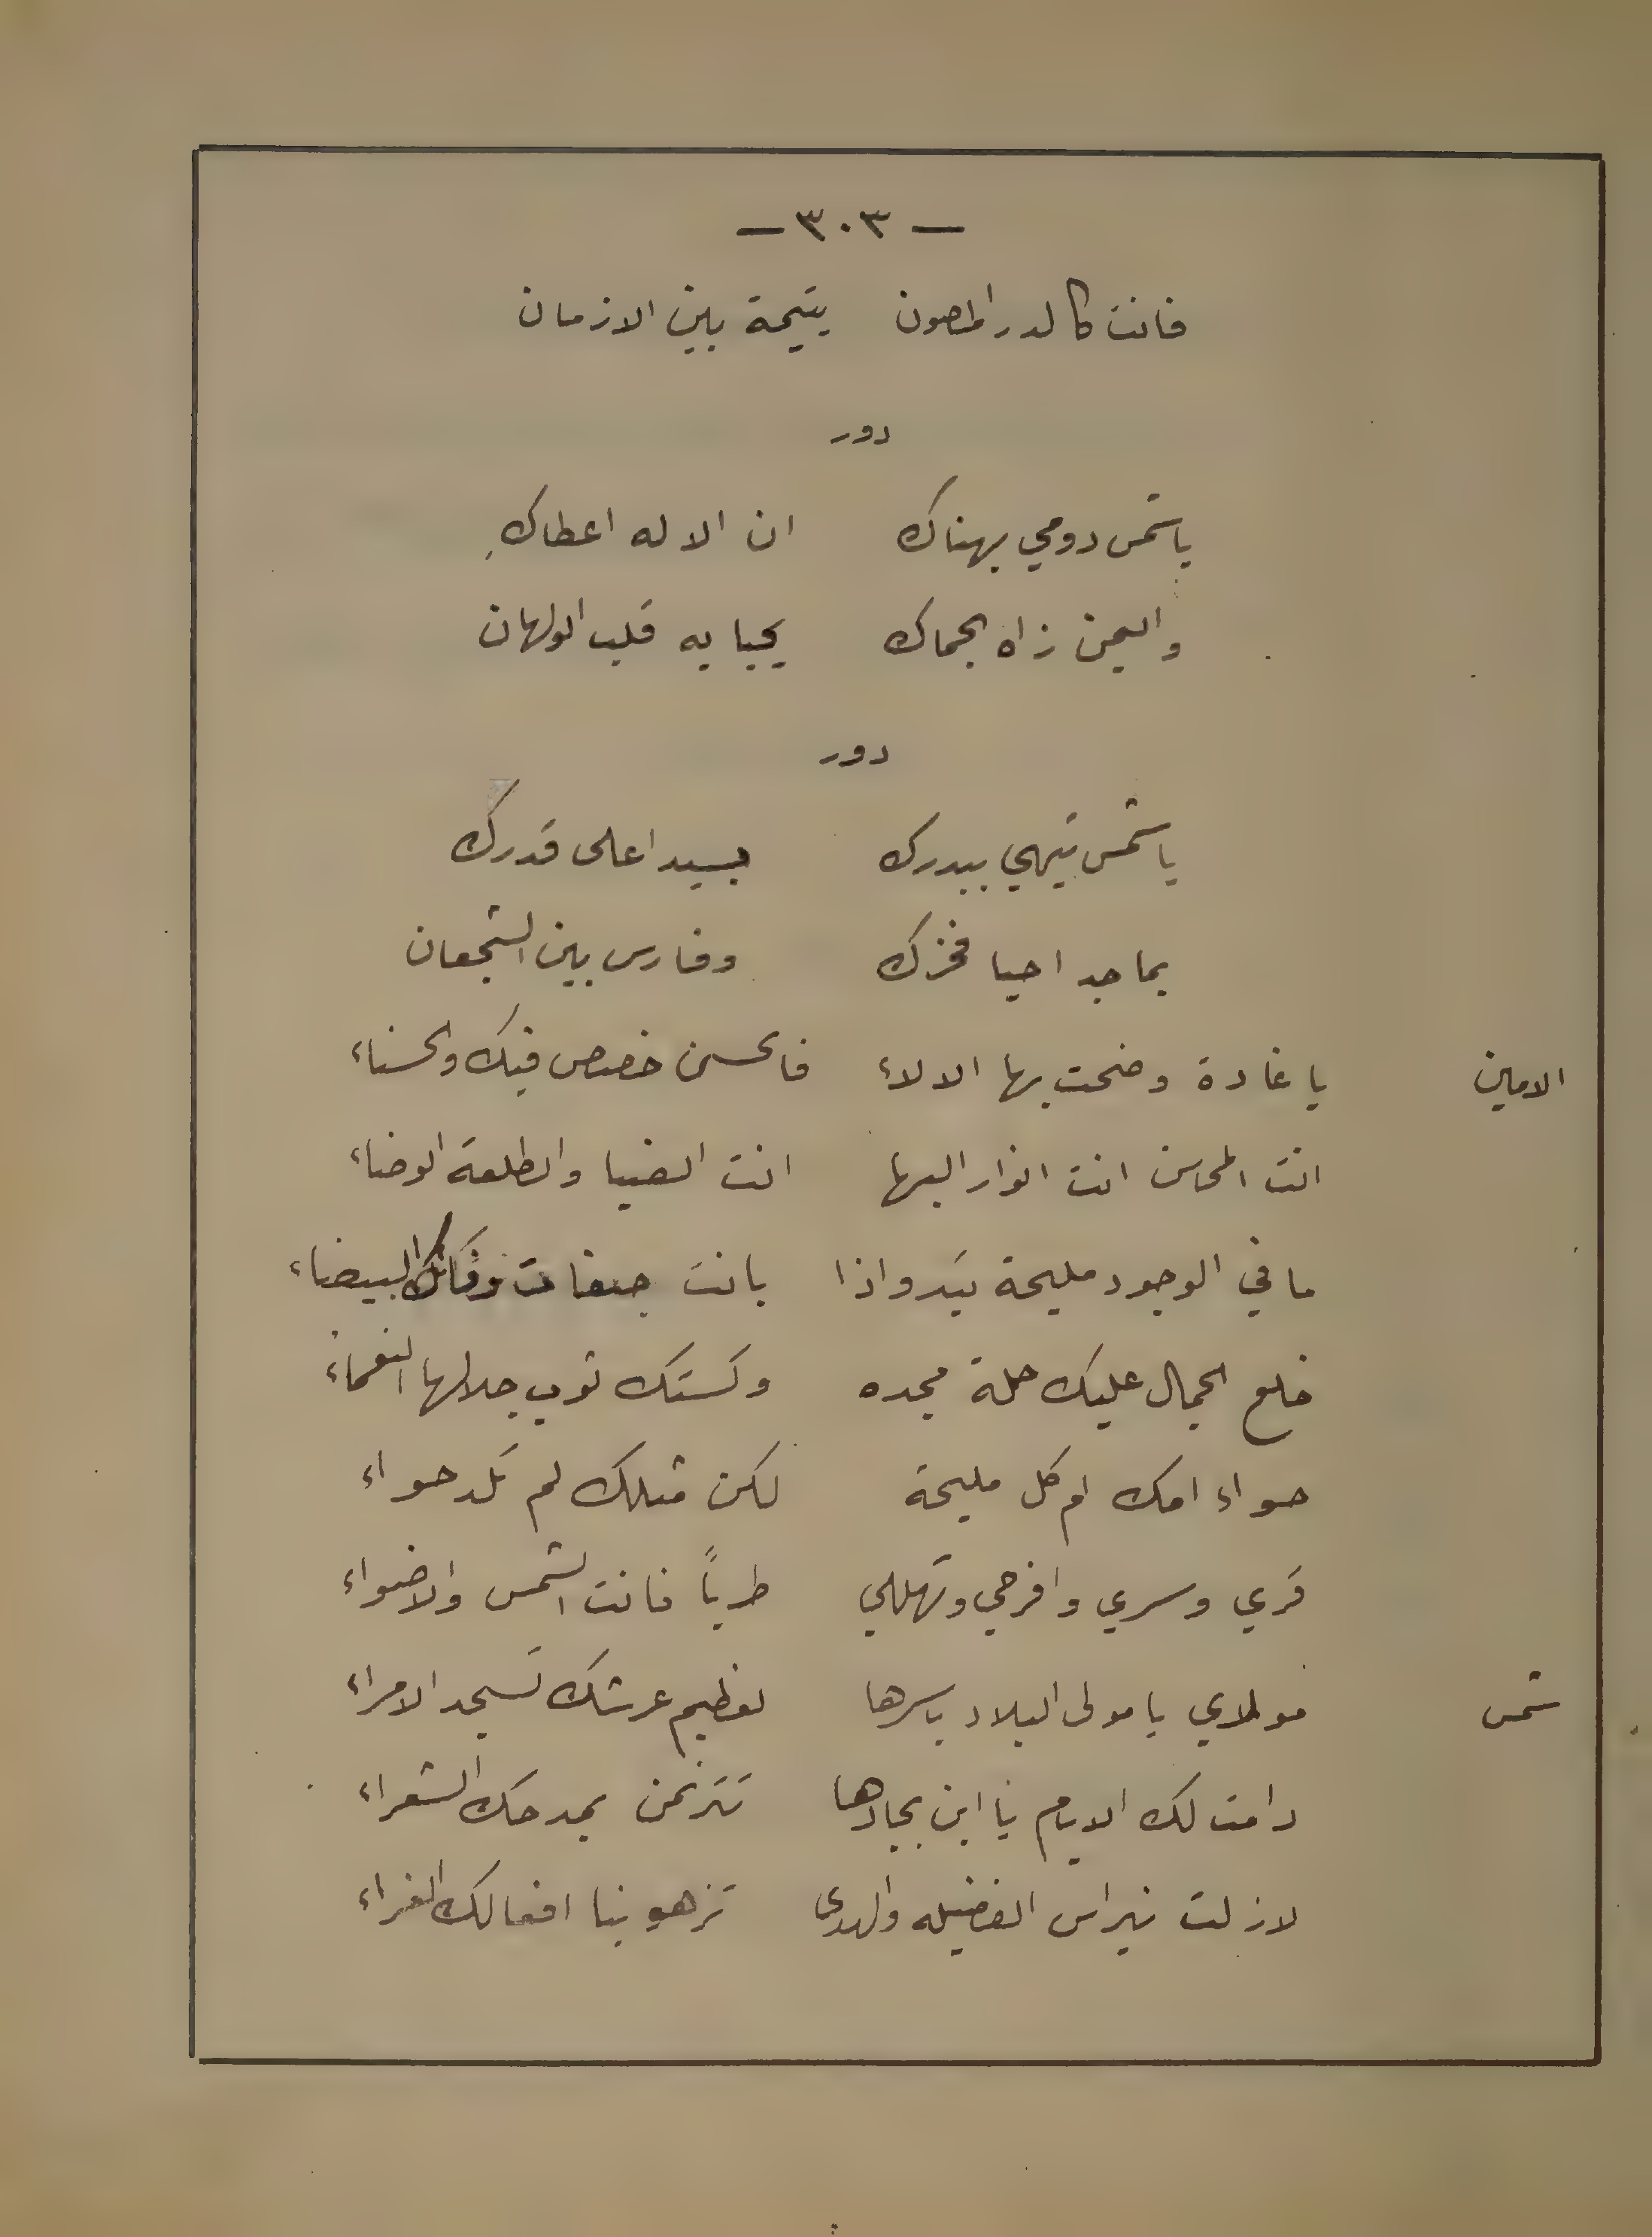 — ٣٠٣ —
فانت كالدر المصون يتيمة بين الازمان
دور
يا شمس دومي بهناك ان الاله اعطاكِ
واليمن زاه بحماك يحيا به قلب الولهان
دور
يا شمس تيهي ببدرك بسيد اعلى قدرك
بماجد احيا فخرك وفارس بين الشجعان
الامين يا غادة وضحت بها الالاء فالحسن خصص فيك والحسناء
انت المحاسن انت انوار البها انت الضيا والطلعة الوضاء
ما في الوجود مليحة تبدو اذا بانت صفات البيضاء
خلع الجمال عليك حلة مجده وكستك ثوب جلالها النعماء
حواء امك ام كل مليحة لكن مثلك لم تلد حواء
قري وسري وافرحي وتهللي طرباً فانت الشمس والاضواء
شمس مولاي يا مولى البلاد باسرها لعظيم عرشك تسجد الامراء
دامت لك الايام يا ابن بجادها تترنمن بمدحك الشعراء
لازلت نبراس الفضيله والهدى تزهو بنا افعالك الغراء